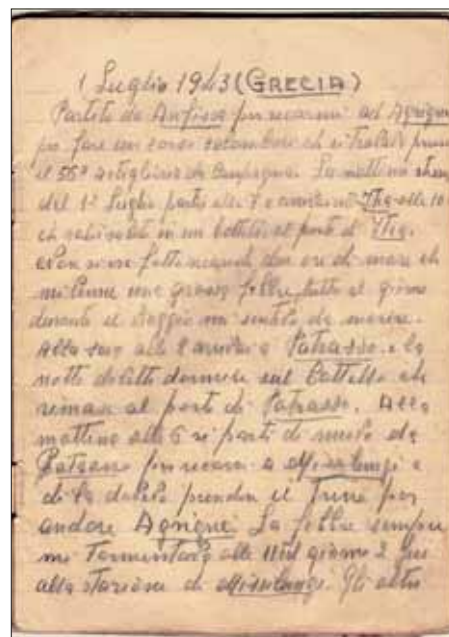 1 Luglio 1943 (GRECIA)
Partito da Anfissa per recarmi ad Agrigni
per fare un corso che si trova presso
il 56º Artiglieria da Campagna. La mattina
del 1º Luglio partii alle 7 e arrivai ad alle 10
e salii in un battello al porto di
Non si era fatto neanche due ore di mare che
mi venne una grossa febbre, tutto il giorno
durante il viaggio mi sentivo da morire.
Alla sera alle arrivai a Patrasso. e la
notte dovetti dormire sul battello che
rimase al porto di Patrasso. Alla
mattina alle 6 si partì di nuovo da
Patrasso per recarsi a Missolungi e
di là dovevo prendere il treno per
andare Agrigni. La febbre sempre
mi alle 11 del giorno 2
alla stazione di Missolungi. Gli altri